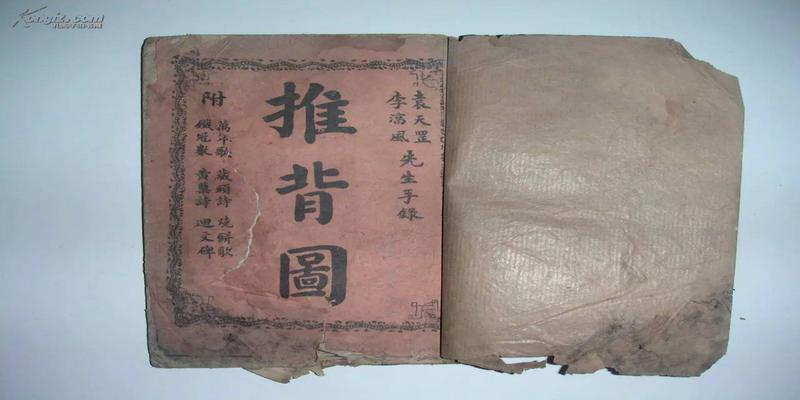 袁天罡
李淳風
先生手錄
推背圖
附
萬年歌 藏頭詩 燒餅歌
鐵冠數 黃蘗詩 迴文碑
Kongfz.com